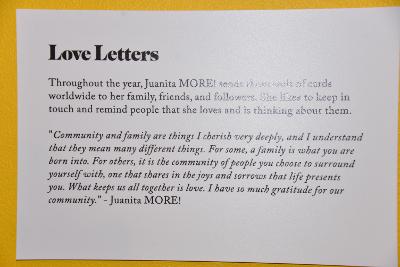 Love Letters
Throughout the year, Juanita MORE! sends thousands of cards
worldwide to her family, friends, and followers. She likes to keep in
touch and remind people that she loves and is thinking about them.
"Community and family are things I cherish very deeply, and I understand
that they mean many different things. For some, a family is what you are
born into. For others, it is the community of people you choose to surround
yourself with, one that shares in the joys and sorrows that life presents
you. What keeps us all together is love. I have so much gratitude for our
community." - Juanita MORE!